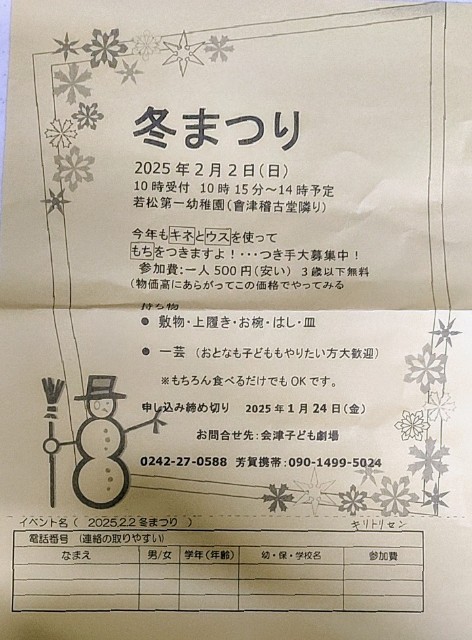 冬まつり
2025年2月2日(日)
10時受付 10時15分～14時予定
若松第一幼稚園(會津稽古堂隣り)
今年もキネとウスを使って
もちをつきますよ！･･･つき手大募集中！
参加費:一人500円(安い) 3歳以下無料
(物価高にあらがってこの価格でやってみる
持ち物
● 敷物・上履き・お椀・はし・皿
● 一芸 (おとなも子どももやりたい方大歓迎)
※もちろん食べるだけでもOKです。
申し込み締め切り 2025年1月24日(金)
お問合せ先:会津子ども劇場
0242-27-0588 芳賀携帯:090-1499-5024
キリトリセン
イベント名( 2025.2.2冬まつり )
電話番号 (連絡の取りやすい)
なまえ 男/女 学年(年齢) 幼・保・学校名 参加費